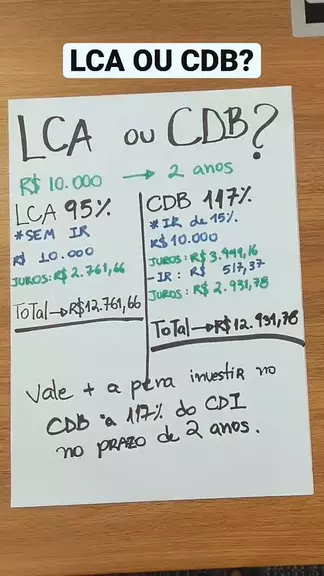 LCA OU CDB?
LCA ou CDB?
R$ 10.000 → 2 anos
LCA 95%
*SEM IR
R$ 10.000
JUROS: R$ 2.761,66
TOTAL → R$12.761,66
CDB 117%
*IR de 15%
R$10.000
JUROS: R$ 3.449,16
- IR: R$ 517,37
JUROS: R$ 2.931,78
TOTAL → R$12.931,78
Vale + a pena investir no
CDB a 117% do CDI
no PRAZO de 2 anos.